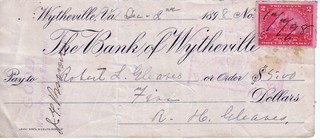 Wytheville, Va. Dec 2nd 1898 No.
The Bank of Wytheville
Pay to Robert L. Gleaves or Order $5.00
Five Dollars
R. H. Gleaves